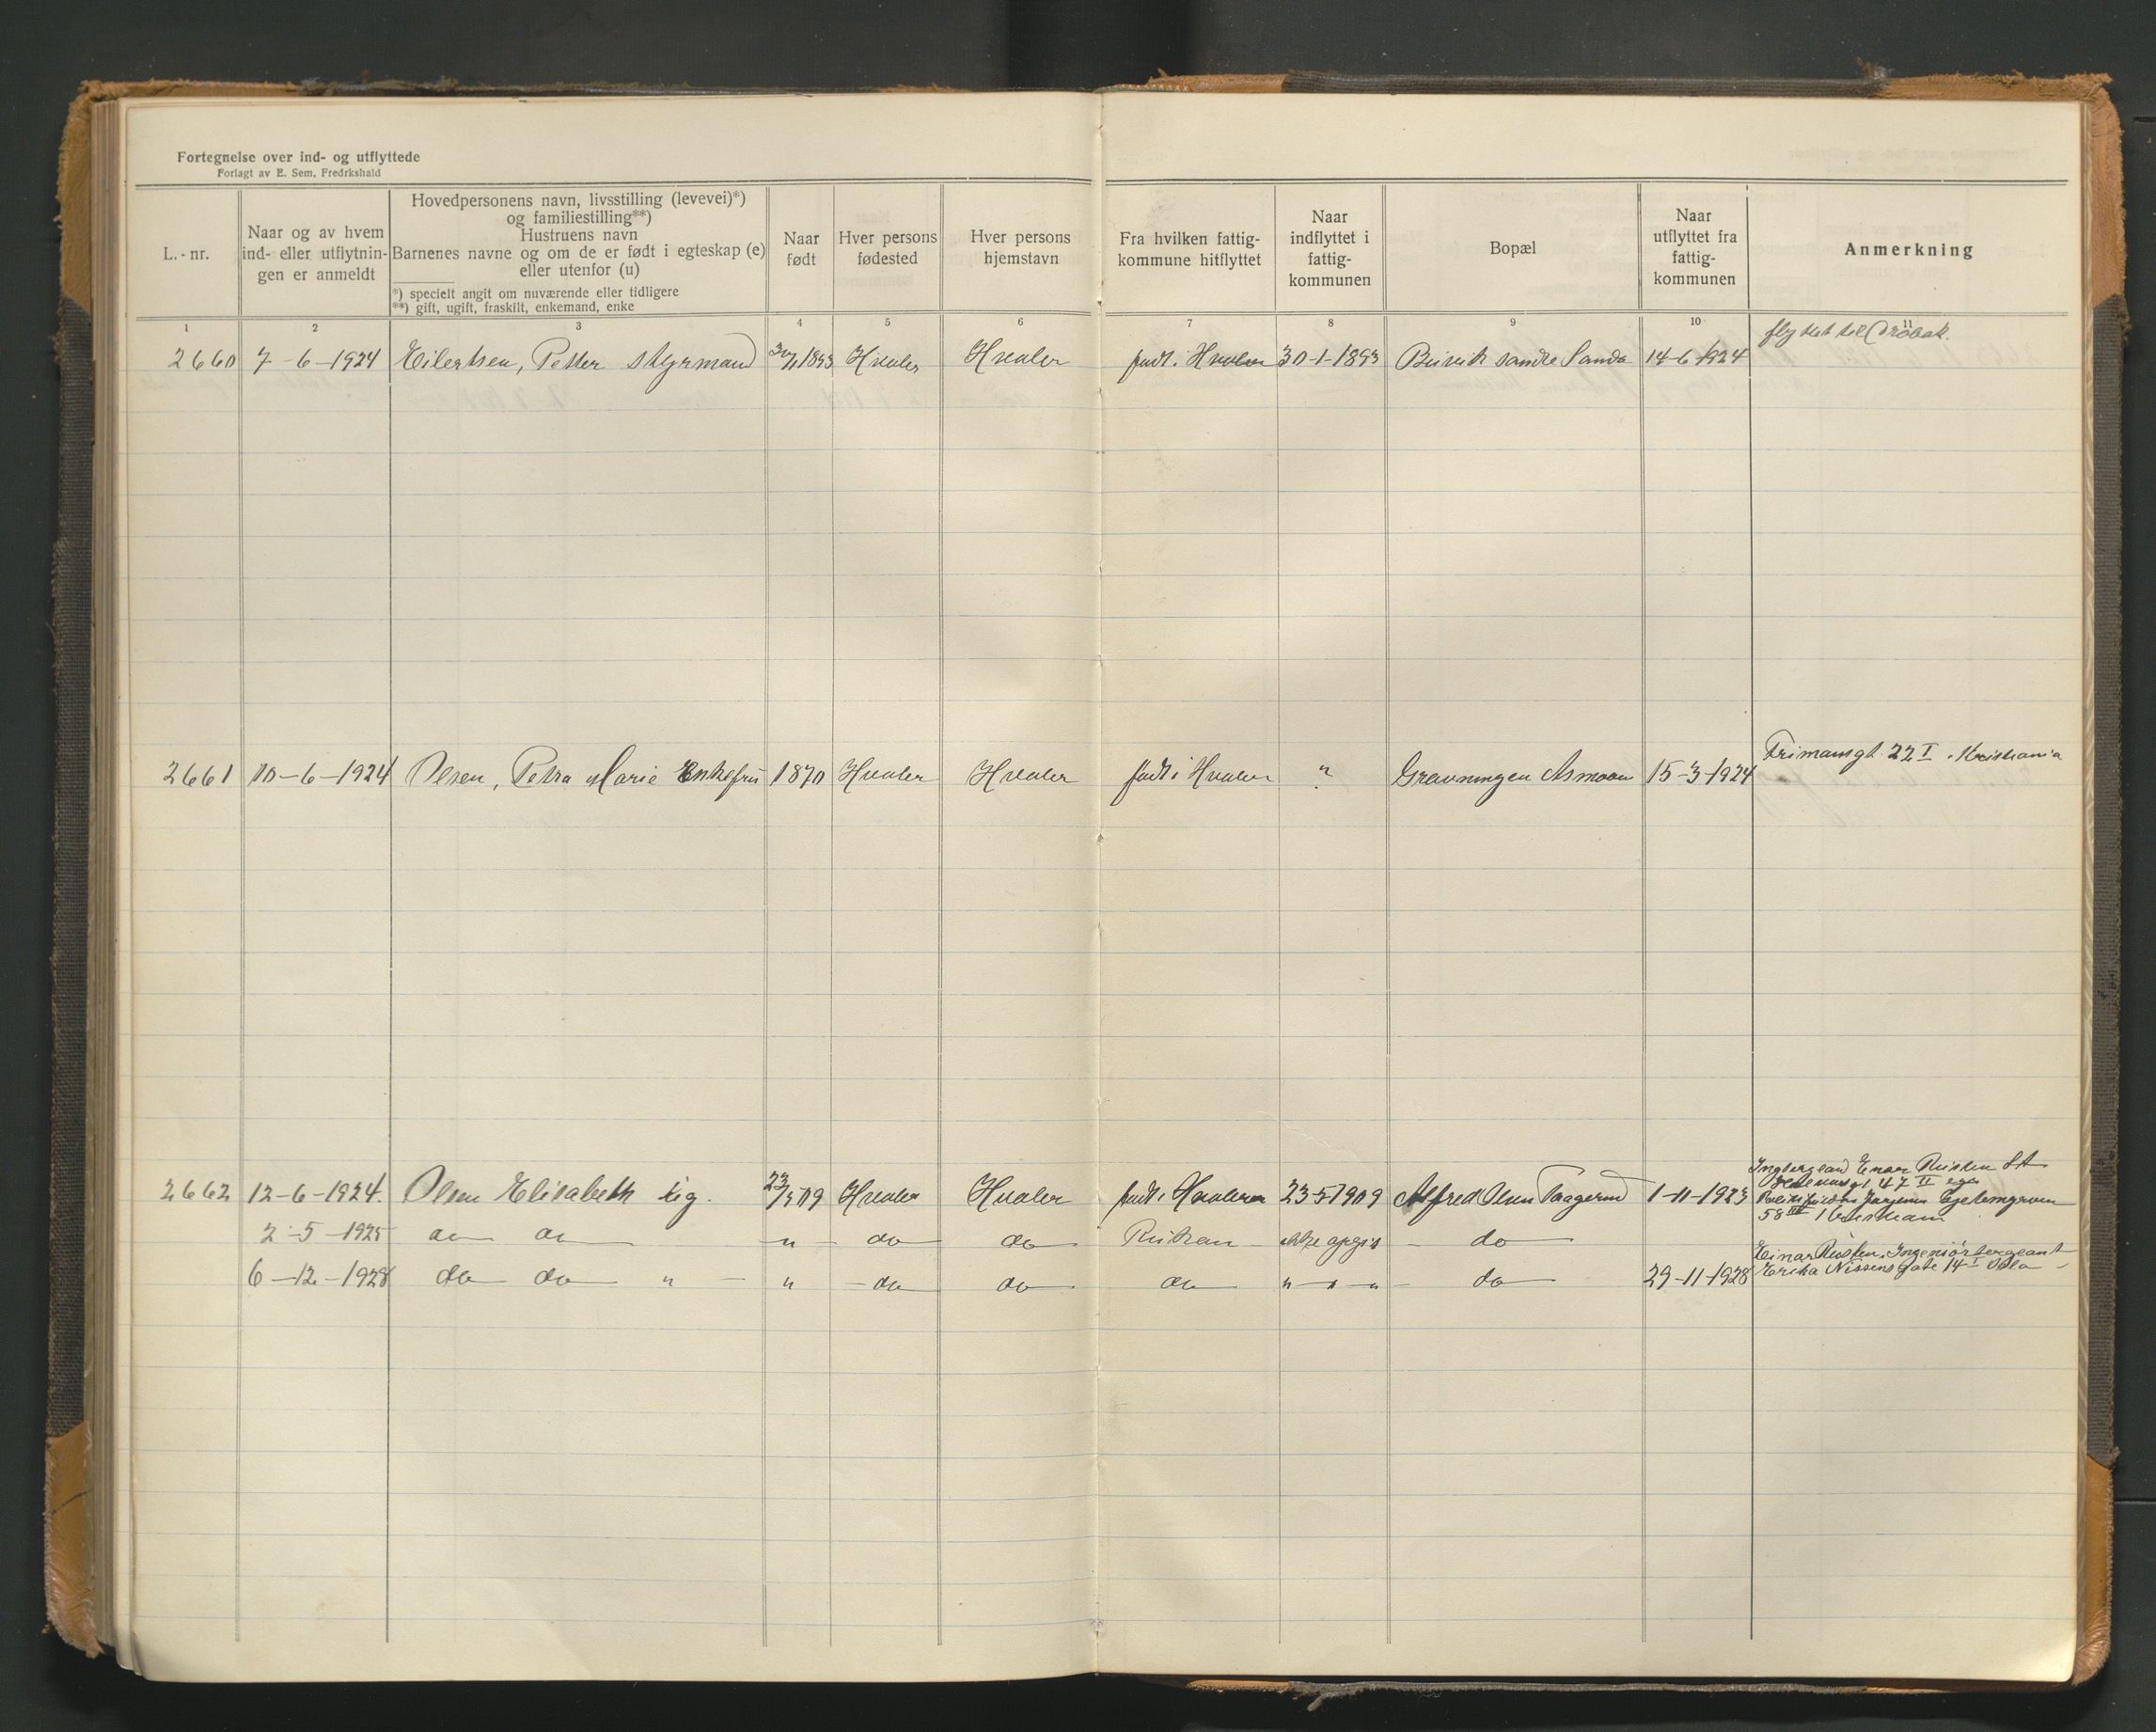 Fortegnelse over ind- og utflyttede
Forlagt av E. Sem, Fredrkshald
L.-nr.
Naar og av hvem
ind- eller utflytnin-
gen er anmeldt
Hovedpersonens navn, livsstilling (levevei)*)
og familiestilling**)
Hustruens navn
Barnenes navne og om de er født i egteskap (e)
eller utenfor (u)
*) specielt angit om nuværende eller tidligere
**) gift, ugift, fraskilt, enkemand, enke
Naar
født
Hver persons
fødested
Hver persons
hjemstavn
Fra hvilken fattig-
kommune hitflyttet
Naar
indflyttet i
fattig-
kommunen
Bopæl
Naar
utflyttet fra
fattig-
kommunen
Anmerkning
1 2 3 4 5 6 7 8 9 10 11
flyttet til Drøbak.
2660 7-6-1924 Eilertsen, Petter styrmand 30/1 1893 Hvaler Hvaler født i Hvaler 30-1-1893 søndre Sandø 14-6-1924
Kristiania
2661 10-6-1924 Olsen, Petra Marie Enkefru 1870 Hvaler Hvaler født i Hvaler " Asmaløen 15-3-1924
22 I
Einar
2662 12-6-1924. Olsen Elisabeth pig. 23/5 09 Hvaler Hvaler født i Hvaler 23-5-1909 Alfred Olsen 1-11-1923
47 II
58 III
2-5-1925 do do " do do ikke opgit do
Einar Ingeniörsergeant
6-12-1928 do do " " do do do " " " do 29-11-1928
Erika Nissens gate 14 I Oslo